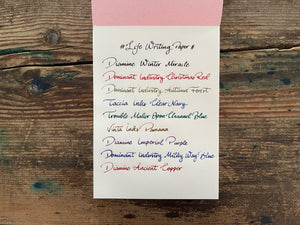 # Life Writing Paper #
Diamine Winter Miracle
Dominant Industry Christmas Red
Dominant Industry Autumn Forest
Taccia Inks Clear Navy
Troublemaker Boon Channel Blue
Vinta Inks Damana
Diamine Imperial Purple
Dominant Industry Milky Way Blue
Diamine Ancient Copper